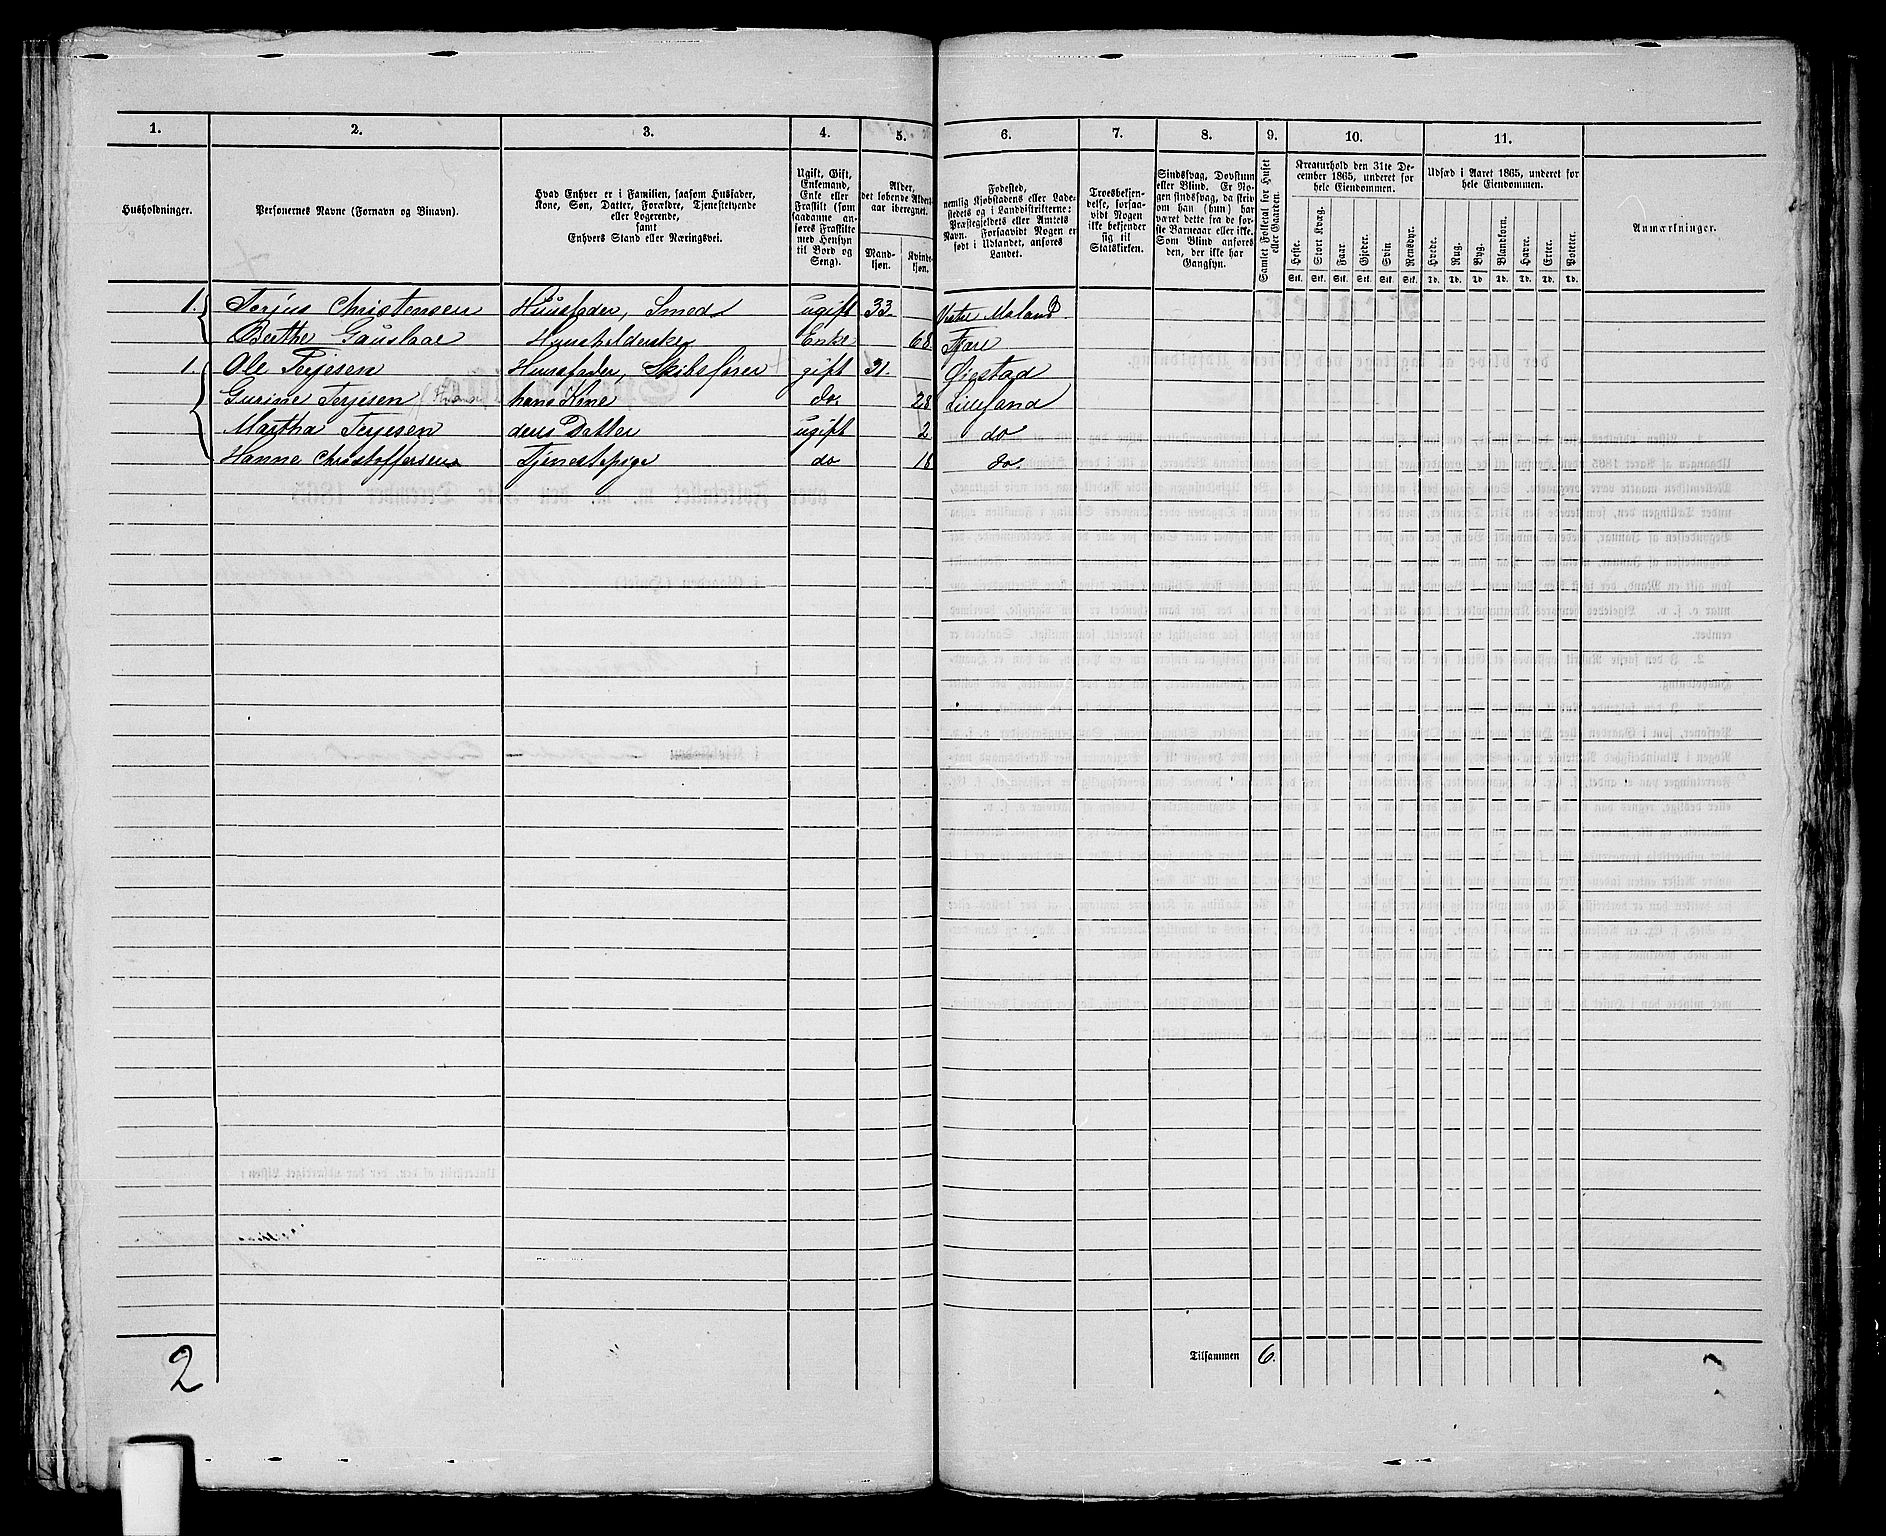 1. 2. 3. 4. 5. 6. 7. 8. 9. 10. 11.
Husholdninger.
Personernes Navne (Fornavn og Binavn).
Hvad Enhver er i Familien, saasom Husfader,
Kone, Søn, Datter, Forældre, Tjenestetyende
eller Logerende,
samt
Enhvers Stand eller Næringsvei.
Ugift, Gift,
Enkemand,
Enke eller
Fraskilt (som
saadanne an-
føres Fraskilte
med Hensyn
til Bord og
Seng).
Alder,
det løbende Alders-
aar iberegnet.
Mand-
kjøn.
Kvinde-
kjøn.
Fødested,
nemlig Kjøbstadens eller Lade-
stedets og i Landdistrikterne:
Præstegjeldets eller Amtets
Navn. Forsaavidt Nogen er
født i Udlandet, anføres
Landet.
Troesbekjen-
delse, forsaa-
vidt Nogen
ikke bekjender
sig til
Statskirken.
Sindssvag, Døvstum
eller Blind. Er No-
gen sindssvag, da skriv
om han (hun) har
været dette fra de før-
ste Barneaar eller ikke.
Som Blind anføres
den, der ikke har
Gangsyn.
Samlet Folketal for Huset
eller Gaarden.
Kreaturhold den 31te De-
cember 1865, underet for
hele Eiendommen.
Heste. Stort Kvæg. Faar. Gjeder. Svin Rensdyr.
Stk. Stk. Stk. Stk. Stk. Stk.
Udsæd i Aaret 1865, underet for
hele Eiendommen.
Hvede. Rug. Byg. Blandkorn. Havre. Erter. Poteter.
Td. Td. Td. Td. Td. Td. Td.
Anmærkninger.
1. Terjus Christensen Huusfader, Smed ugift 33. Vestre Moland.
Berthe Gauslaae Huusholderske Enke 68 Fjære
1. Ole Terjesen Huusfader, Skibsfører gift 31. Øiestad
Gurine Terjesen hans Kone do. 28 Lillesand
Martha Terjesen deres Datter ugift 2 do
Hanne Christoffersen Tjenestepige do 18 do.
2
Tilsammen 6.